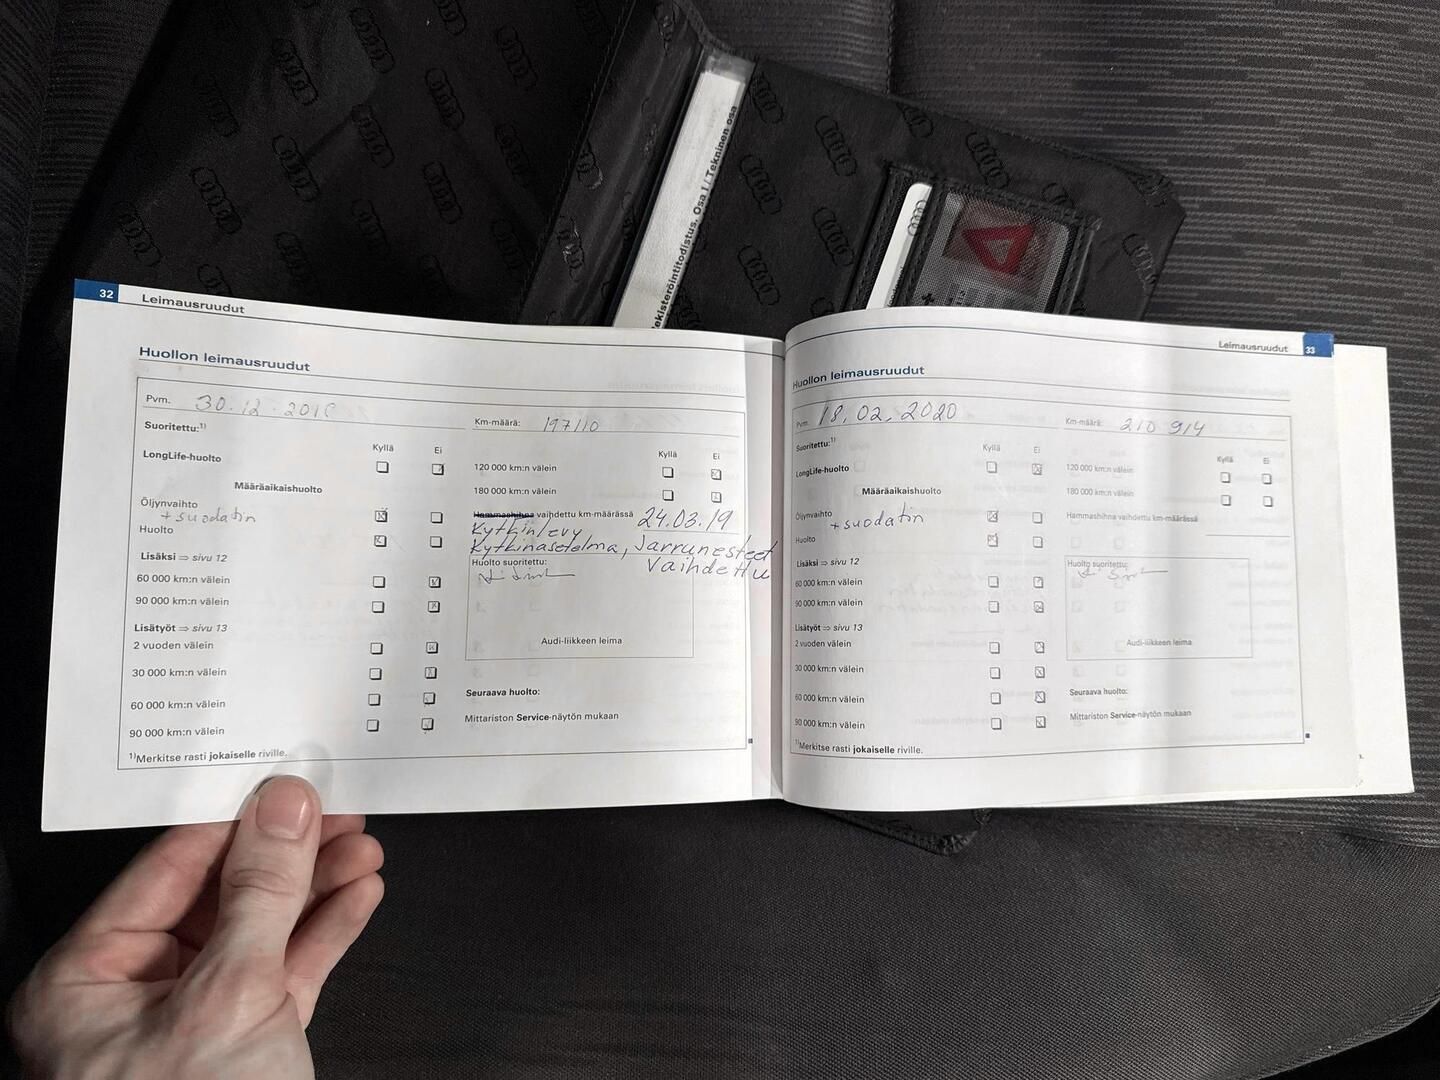 ekisteröintitodistus, Osa I / Tekninen osa
32 Leimausruudut
Huollon leimausruudut
Pvm. 30.12.
Km-määrä: 197110
Suoritettu:¹⁾
Kyllä Ei
LongLife-huolto
Määräaikaishuolto
Öljynvaihto
+ suodatin
Huolto
Lisäksi ⇒ sivu 12
60 000 km:n välein
90 000 km:n välein
Lisätyöt ⇒ sivu 13
2 vuoden välein
30 000 km:n välein
60 000 km:n välein
90 000 km:n välein
¹⁾Merkitse rasti jokaiselle riville.
Kyllä Ei
120 000 km:n välein
180 000 km:n välein
Hammashihna vaihdettu km-määrässä 24.03.19
Kytkinlevy
Kytkinasetelma, Jarrunesteet
Vaihdettu
Huolto suoritettu:
Audi-liikkeen leima
Seuraava huolto:
Mittariston Service-näytön mukaan
Leimausruudut 33
Huollon leimausruudut
Pvm. 18.02.2020
Km-määrä: 210 914
Suoritettu:¹⁾
Kyllä Ei
LongLife-huolto
Määräaikaishuolto
Öljynvaihto
+ suodatin
Huolto
Lisäksi ⇒ sivu 12
60 000 km:n välein
90 000 km:n välein
Lisätyöt ⇒ sivu 13
2 vuoden välein
30 000 km:n välein
60 000 km:n välein
90 000 km:n välein
¹⁾Merkitse rasti jokaiselle riville.
Kyllä Ei
120 000 km:n välein
180 000 km:n välein
Hammashihna vaihdettu km-määrässä
Huolto suoritettu:
Audi-liikkeen leima
Seuraava huolto:
Mittariston Service-näytön mukaan